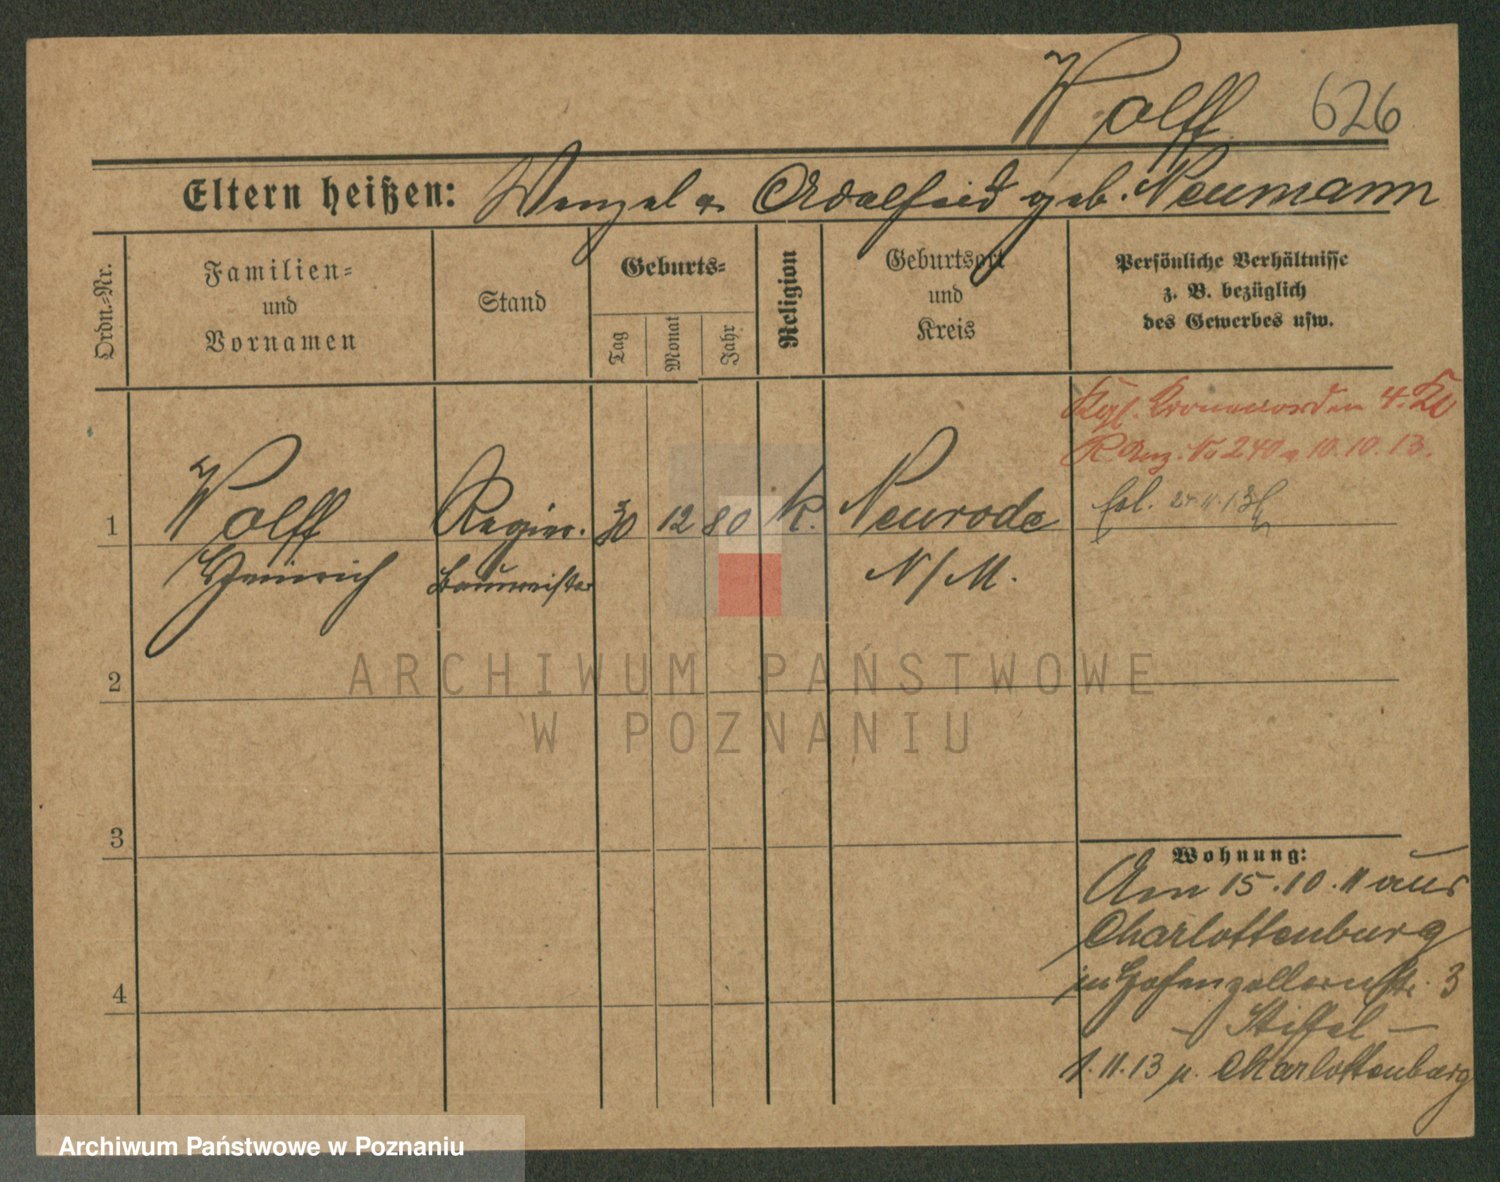 Wolff 626
Eltern heißen: Wenzel u. Adelheid geb. Neumann
Ordn.-Nr.
Familien-
und
Vornamen
Stand
Geburts-
Tag
Monat
Jahr
Religion
Geburtsort
und
Kreis
Persönliche Verhältnisse
z. B. bezüglich
des Gewerbes usw.
Kgl. Kronenorden 4. Kl
R Anz. No 240 v 10.10.13.
1 Wolff Regier. 30 12 80 k. Neurode
Heinrich baumeister N/M.
2
3
4
Wohnung:
Am 15.10.11 aus
Charlottenburg
in Hohenzollernstr. 3
– Stiffel –
1.11.13 n. Charlottenburg
ARCHIWUM PAŃSTWOWE
W POZNANIU
Archiwum Państwowe w Poznaniu